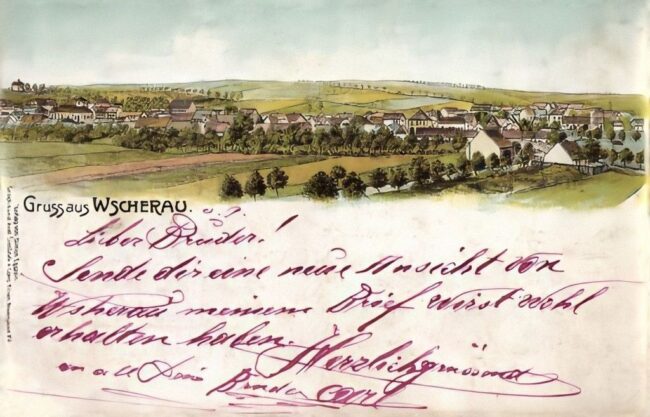 Gruss aus WSCHERAU.
Lieber Bruder!
Sende dir eine neue Ansicht von
Wscherau meinen Brief wirst wohl
erhalten haben.
Herzlich grüssend
Bruder Carl